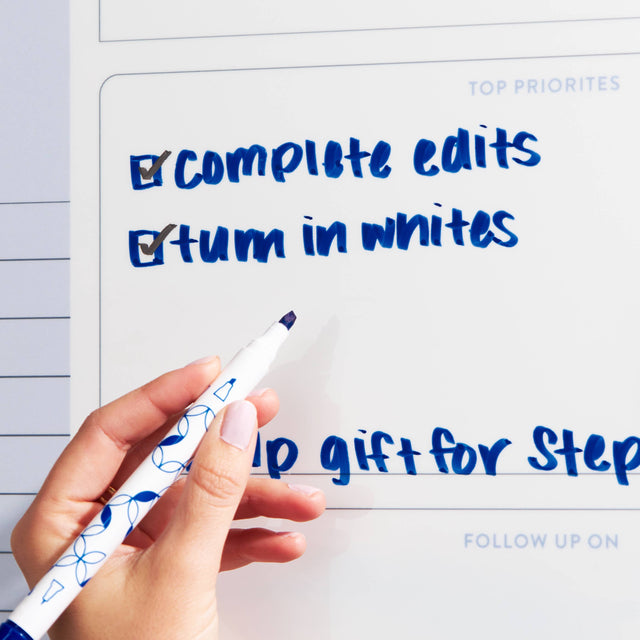 TOP PRIORITES
complete edits
turn in whites
gift for Step
FOLLOW UP ON